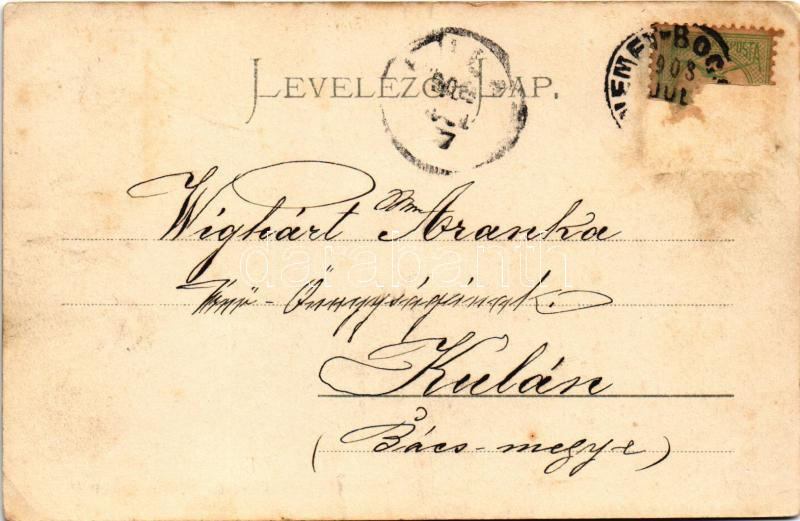 LEVELEZŐ LAP.
NÉMET-BOG
908
JUL
POSTA
7
Wighárt Aranka
Önagyságának.
Kulán
(Bács-megye)
darabanth